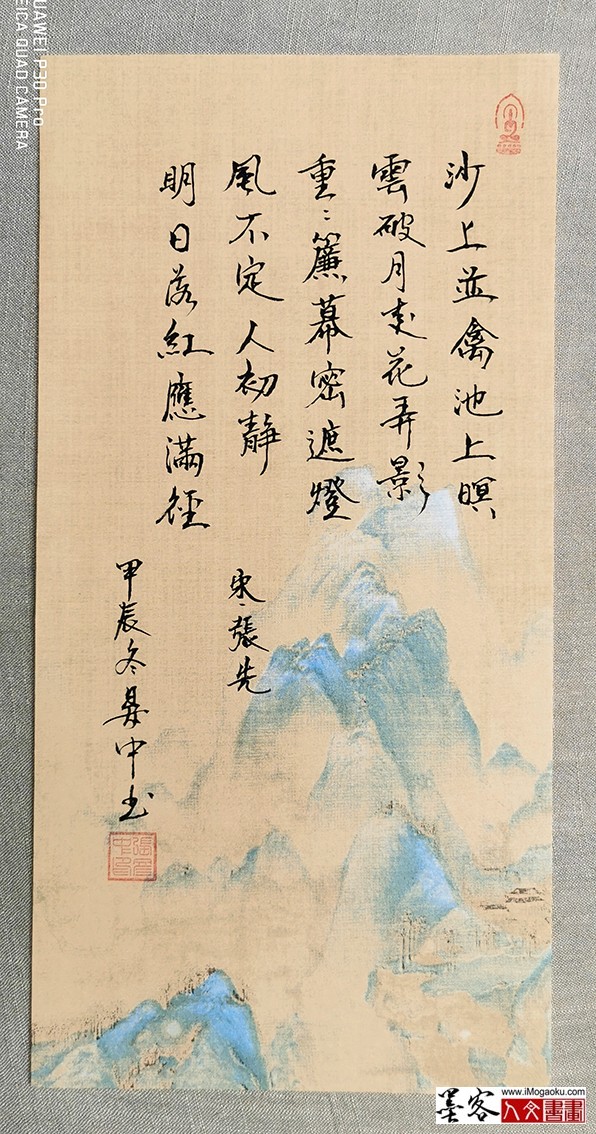 沙上並禽池上暝
雲破月来花弄影
重〻簾幕密遮燈
風不定人初静
明日落紅應滿徑
宋·張先
甲辰冬晏中书
HUAWEI P30 Pro
LEICA QUAD CAMERA
墨客
www.iMogaoku.com
人文書畫